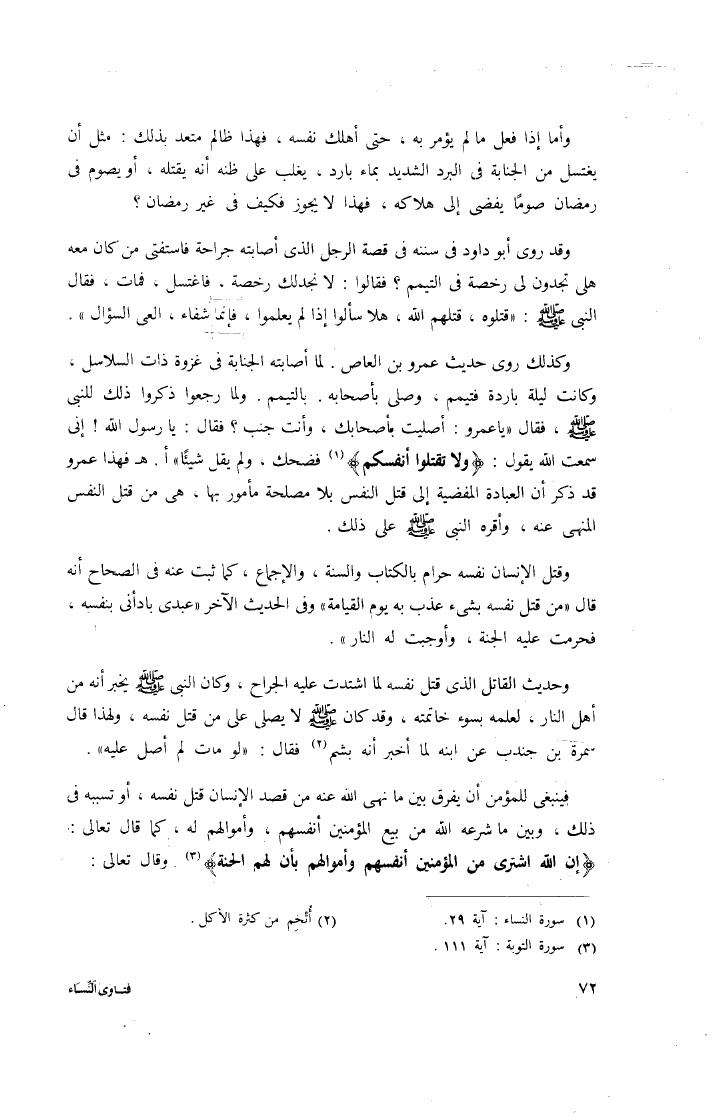 وأما إذا فعل ما لم يؤمر به ، حتى أهلك نفسه ، فهذا ظالم متعد بذلك : مثل أن
يغتسل من الجنابة فى البرد الشديد بماء بارد ، يغلب على ظنه أنه يقتله ، أو يصوم فى
رمضان صومًا يفضى إلى هلاكه ، فهذا لا يجوز فكيف فى غير رمضان ؟
وقد روى أبو داود فى سننه فى قصة الرجل الذى أصابته جراحة فاستفتى من كان معه
هلى تجدون لى رخصة فى التيمم ؟ فقالوا : لا نجدلك رخصة . فاغتسل ، فمات ، فقال
النبى ﷺ : «قتلوه ، قتلهم الله ، هلا سألوا إذا لم يعلموا ، فإنما شفاء ، العى السؤال » .
وكذلك روى حديث عمرو بن العاص . لما أصابته الجنابة فى غزوة ذات السلاسل ،
وكانت ليلة باردة فتيمم ، وصلى بأصحابه . بالتيمم . ولما رجعوا ذكروا ذلك للنبى
ﷺ ، فقال «ياعمرو : أصليت بأصحابك ، وأنت جنب ؟ فقال : يا رسول الله ! إنى
سمعت الله يقول : ﴿ولا تقتلوا أنفسكم﴾(١) فضحك ، ولم يقل شيئًا» أ . هـ فهذا عمرو
قد ذكر أن العبادة المفضية إلى قتل النفس بلا مصلحة مأمور بها ، هى من قتل النفس
المنهى عنه ، وأقره النبى ﷺ على ذلك .
وقتل الإنسان نفسه حرام بالكتاب والسنة ، والإجماع ، كما ثبت عنه فى الصحاح أنه
قال «من قتل نفسه بشىء عذب به يوم القيامة» وفى الحديث الآخر «عبدى بادأنى بنفسه ،
فحرمت عليه الجنة ، وأوجبت له النار » .
وحديث القاتل الذى قتل نفسه لما اشتدت عليه الجراح ، وكان النبى ﷺ يخبر أنه من
أهل النار ، لعلمه بسوء خاتمته ، وقد كان ﷺ لا يصلى على من قتل نفسه ، ولهذا قال
سمرة بن جندب عن ابنه لما أخبر أنه بشم(٢) فقال : «لو مات لم أصل عليه» .
فينبغى للمؤمن أن يفرق بين ما نهى الله عنه من قصد الإنسان قتل نفسه ، أو تسببه فى
ذلك ، وبين ما شرعه الله من بيع المؤمنين أنفسهم ، وأموالهم له ، كما قال تعالى :
﴿إن الله اشترى من المؤمنين أنفسهم وأموالهم بأن لهم الجنة﴾(٣) . وقال تعالى :
(١) سورة النساء : آية ٢٩. (٢) أُتْخِم من كثرة الأكل .
(٣) سورة التوبة : آية ١١١ .
٧٢ فتاوى النساء